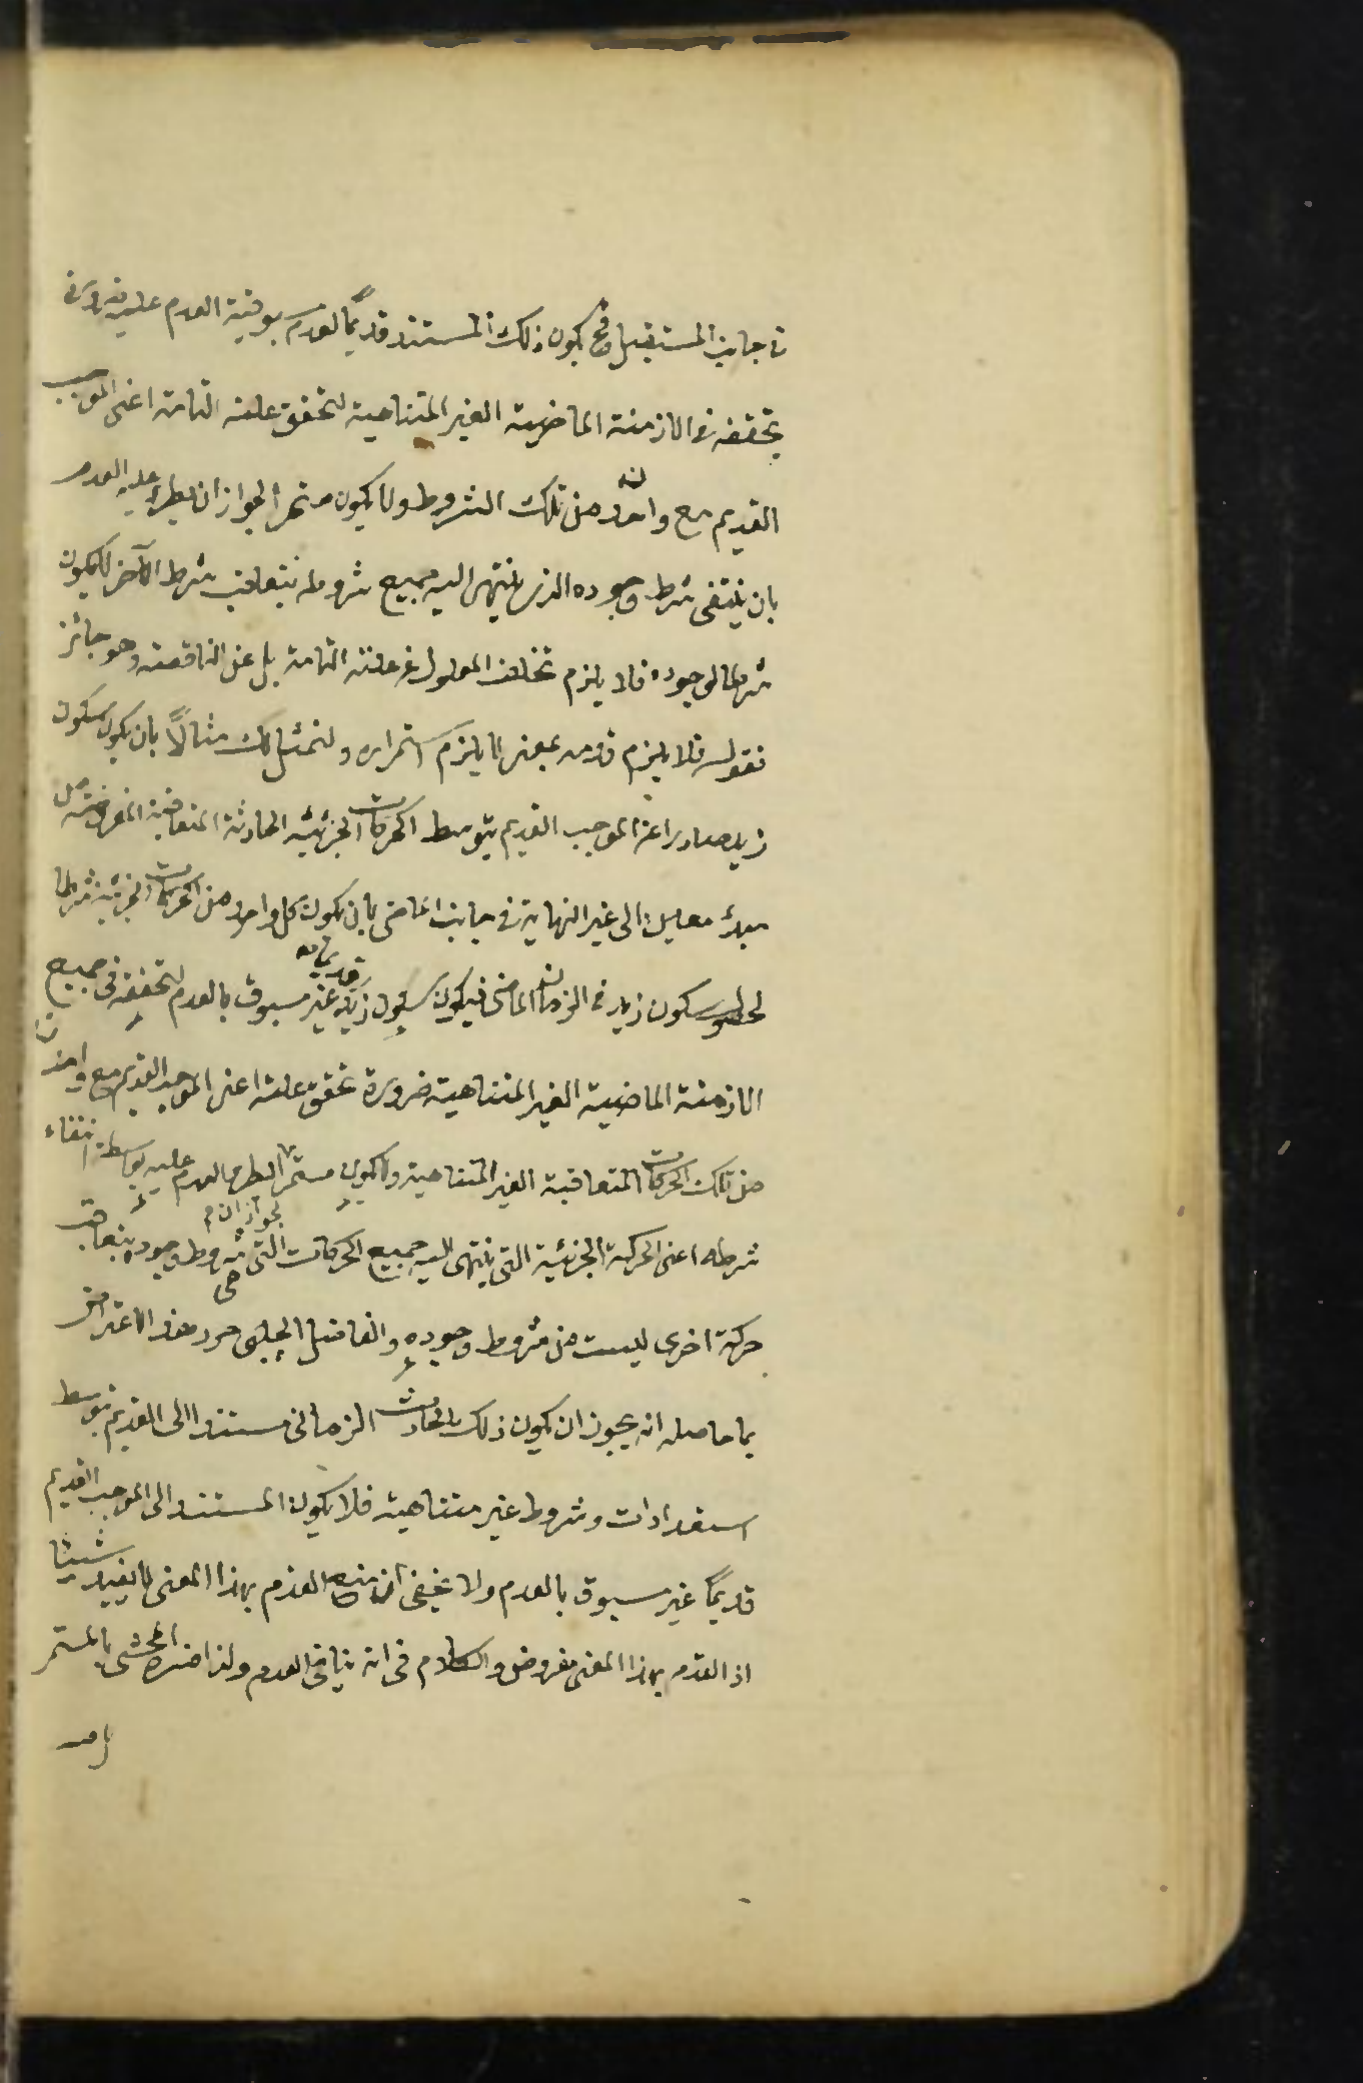 في جانب المستقبل فح يكون ذلك المستند قديمًا لعدم مسبوقية العدم عليه ضرورة
تحققه في الازمنة الماضية الغير المتناهية لتحقق علته التامة اعنى الموجب
القديم مع واحد من تلك الشروط ولا يكون مستمرا لجواز ان يطرء عليه العدم
بان ينتفى شرط وجوده الذى ينتهى اليه جميع شروطه بتعاقب شرط الآخر لا يكون
شرطا لوجوده فلا يلزم تخلف المعلول عن علته التامة بل عن الناقصة وهو جائز
فقوله فلا يلزم قدمه بمعنى لا يلزم استمراره ولنمثل لك مثالًا بان يكون سكون
زيد صادرا عن الموجب القديم بتوسط الحركات الجزئية الحادثة المتعاقبة المفروضة من
مبدء معين الى غير النهاية في جانب الماضى بان يكون كل واحد من الحركات الجزئية شرطا
لحصول سكون زيد في الزمان الماضى فيكون سكون زيد قديما غير مسبوق بالعدم لتحققه في جميع
الازمنة الماضية الغير المتناهية ضرورة تحقق علته اعنى الموجب القديم مع واحد
من تلك الحركات المتعاقبة الغير المتناهية ولا يكون مستمرا لجواز ان يطرء العدم عليه بواسطة انتفاء
شرطه اعنى الحركة الجزئية التى ينتهى اليه جميع الحركات التى هى شروط وجوده بتعاقب
حركة اخرى ليست من شروط وجوده والفاضل الجلبى حرر هذا الاعتراض
بما حاصله انه يجوز ان يكون ذلك الحادث الزمانى مستندا الى القديم بتوسط
استعدادات وشروط غير متناهية فلا يكون المستند الى الموجب القديم
قديمًا غير مسبوق بالعدم ولا يخفى ان منع القدم بهذا المعنى لا يفيد شيئا
اذ القدم بهذا المعنى مفروض والكلام فى انه ينافى العدم ولذا فسره المحشى بالمستمر